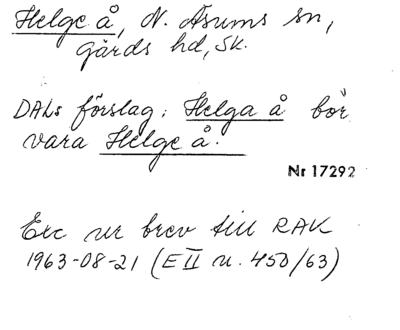 Helge å, N. Åsums sn,
gärds hd, Sk.
DALs förslag: Helga å bör
vara Helge å.
Nr 17292
Exc ur brev till RAK
1963-08-21 (E II u. 450/63)